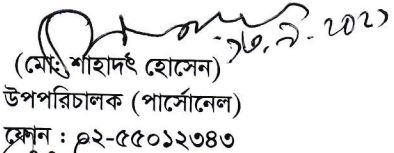 (মোঃ শাহাদৎ হোসেন)
উপপরিচালক (পার্সোনেল)
ফোন : ০২-৫৫০১২৩৪৩